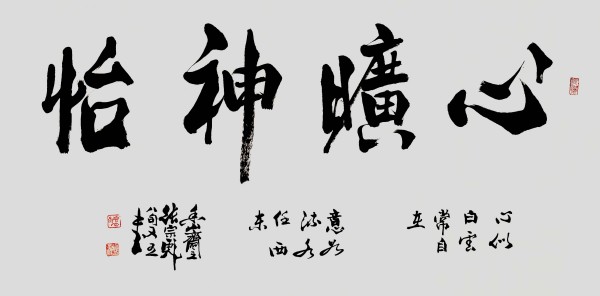 心曠神怡
心似
白雲
常自
在
意如
流水
任西
东
旬又五